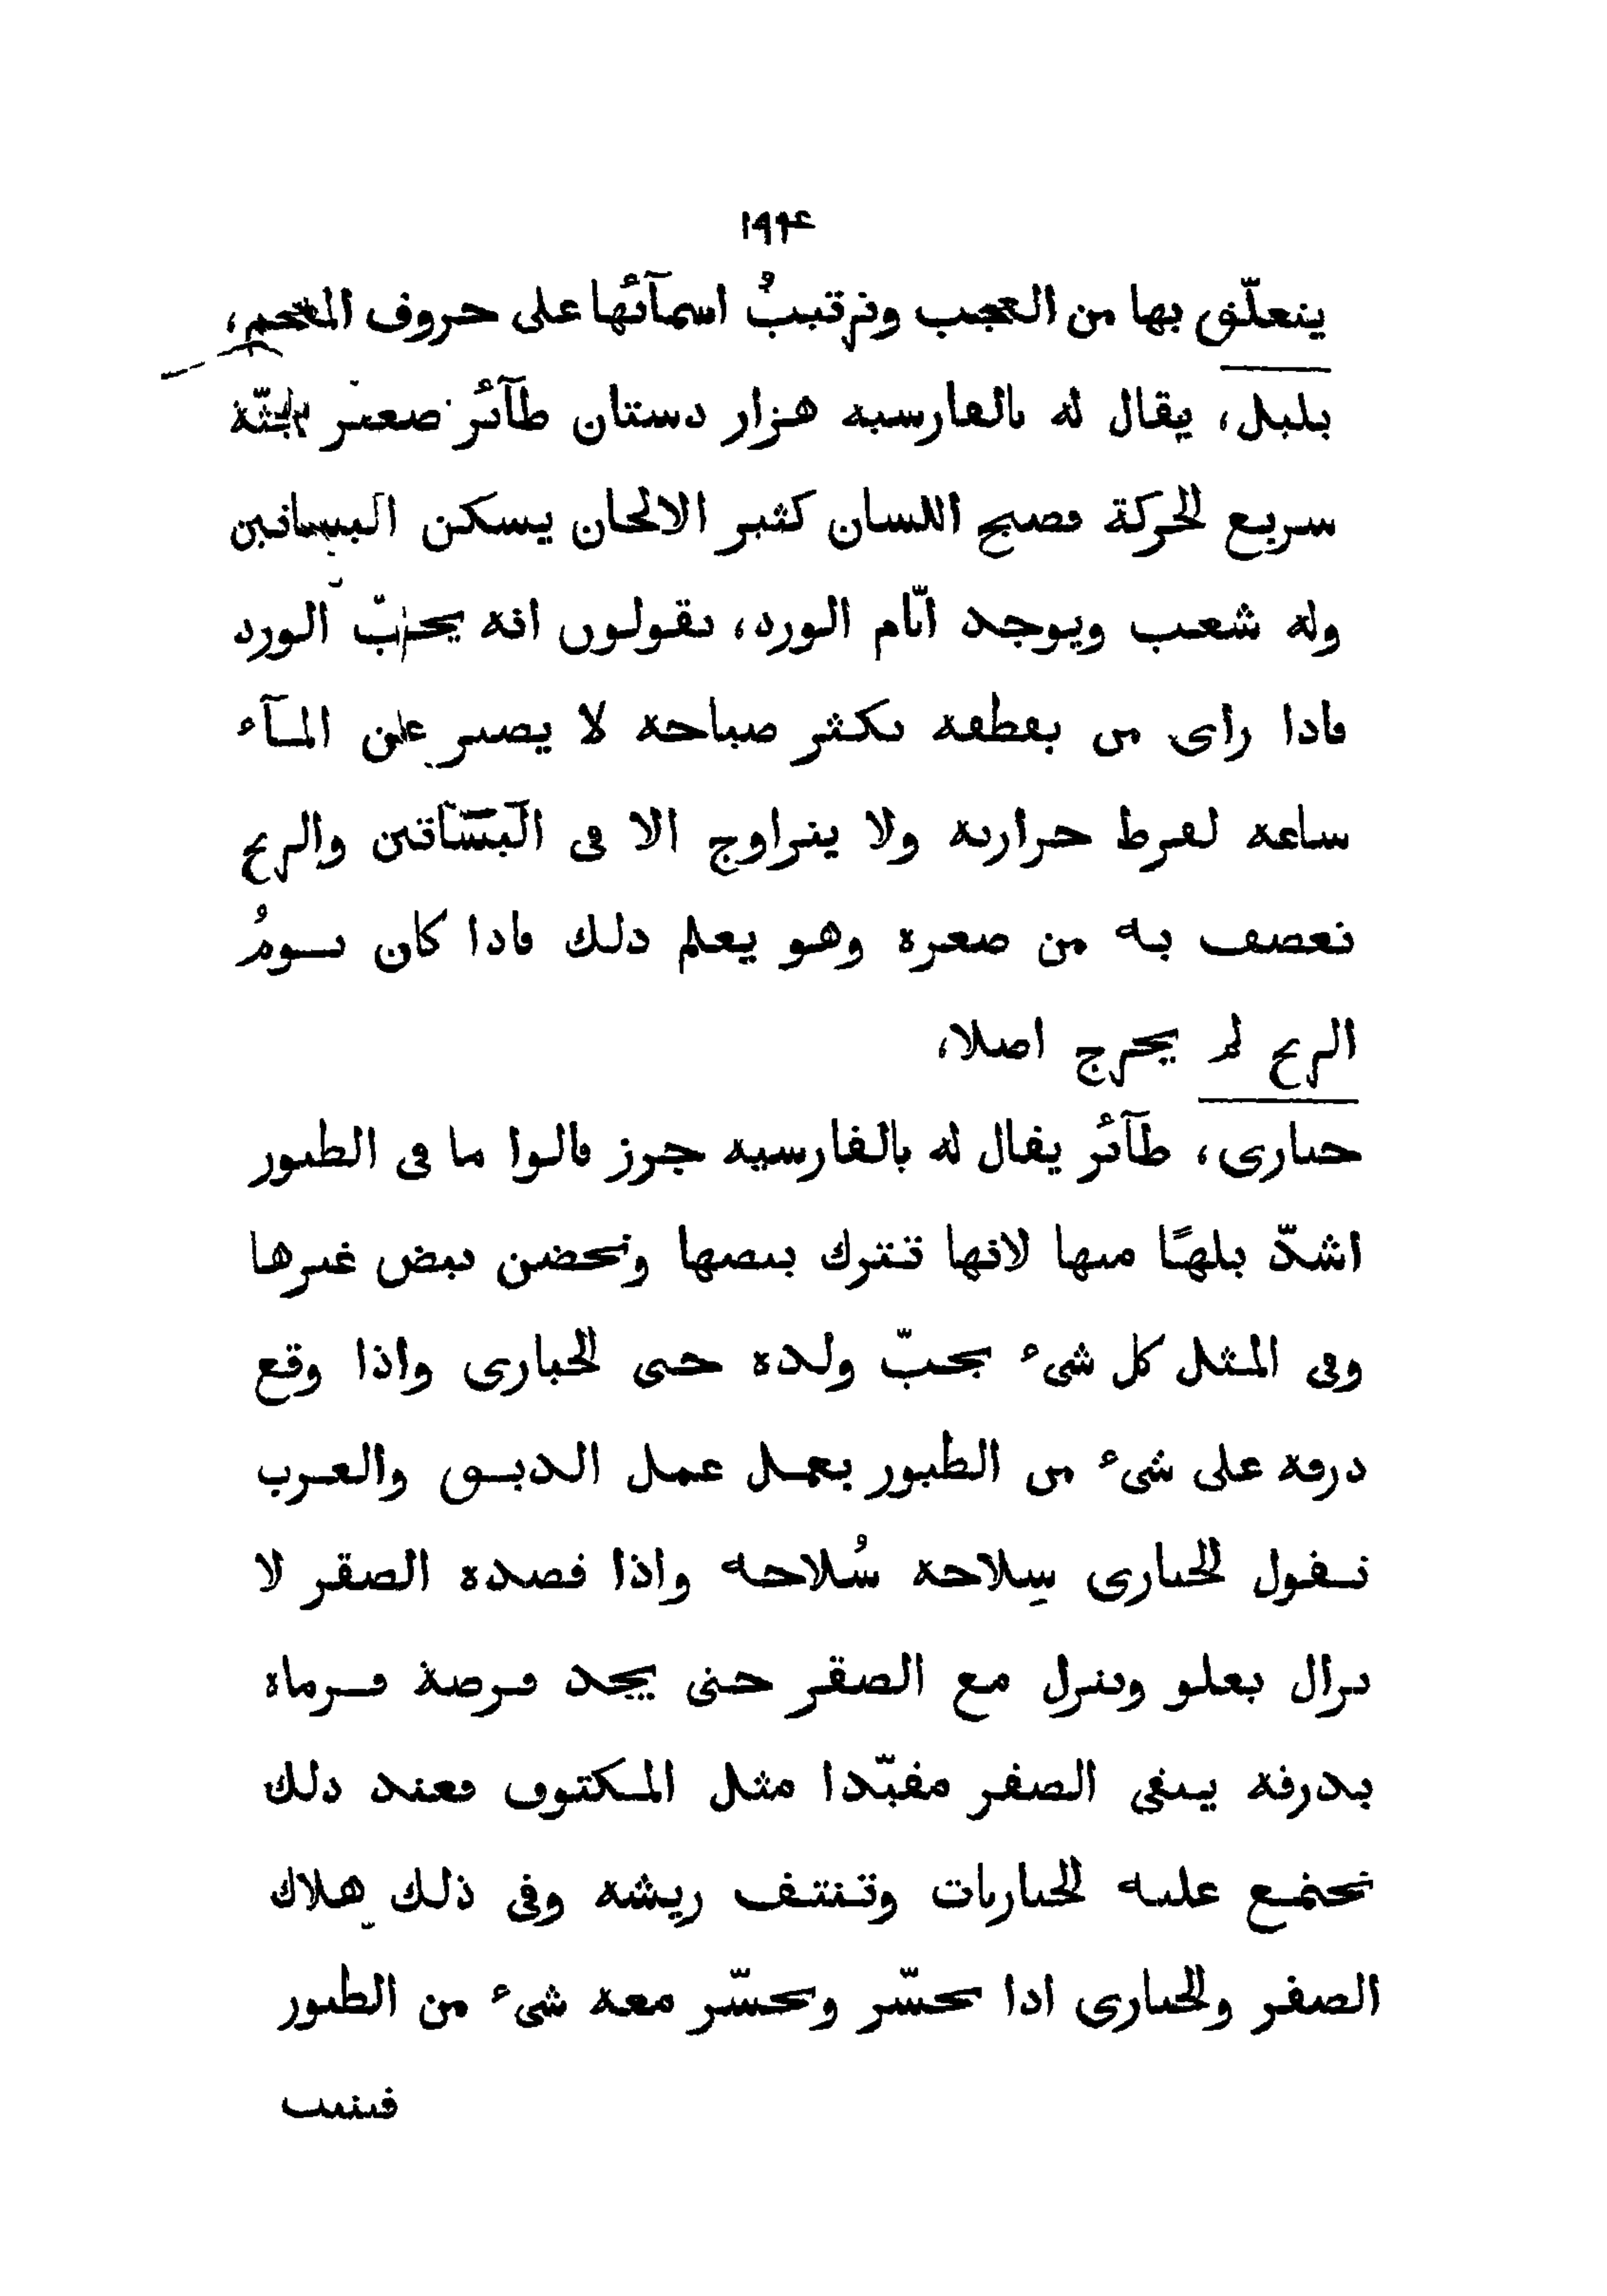 ١٩٤
يتعلّق بها من العجب ونرتيبُ اسمآئها على حروف المعجم،
بلبل، يقال له بالفارسية هزار دستان طآئر صغير الجثّة
سريع الحركة فصيح اللسان كثير الالحان يسكن البساتين
وله شعب ويوجد ايّام الورد، يقولون انه يحبّ الورد
فاذا راى من يقطفه يكثر صياحه لا يصبر عن المآء
ساعة لفرط حرارته ولا يتزاوج الا فى البساتين والريح
تعصف به من صغره وهو يعلم ذلك فاذا كان يومُ
الريح لم يخرج اصلا،
حبارى، طآئر يقال له بالفارسية جرز قالوا ما فى الطيور
اشدّ بلهًا منها لانها تترك بيضها وتحضن بيض غيرها
وفى المثل كل شىء يحبّ ولده حتى الحبارى واذا وقع
ذرقه على شىء من الطيور يعمل عمل الدبق والعرب
تقول الحبارى سِلاحه سُلاحه واذا قصده الصقر لا
يزال يعلو وينزل مع الصقر حتى يجد فرصة فرماه
بذرقه يبقى الصقر مقيّدا مثل المكتوف فعند ذلك
تجتمع عليه الحباريات وتنتف ريشه وفى ذلك هلاك
الصقر والحبارى اذا تحسّر وتحسّر معه شىء من الطيور